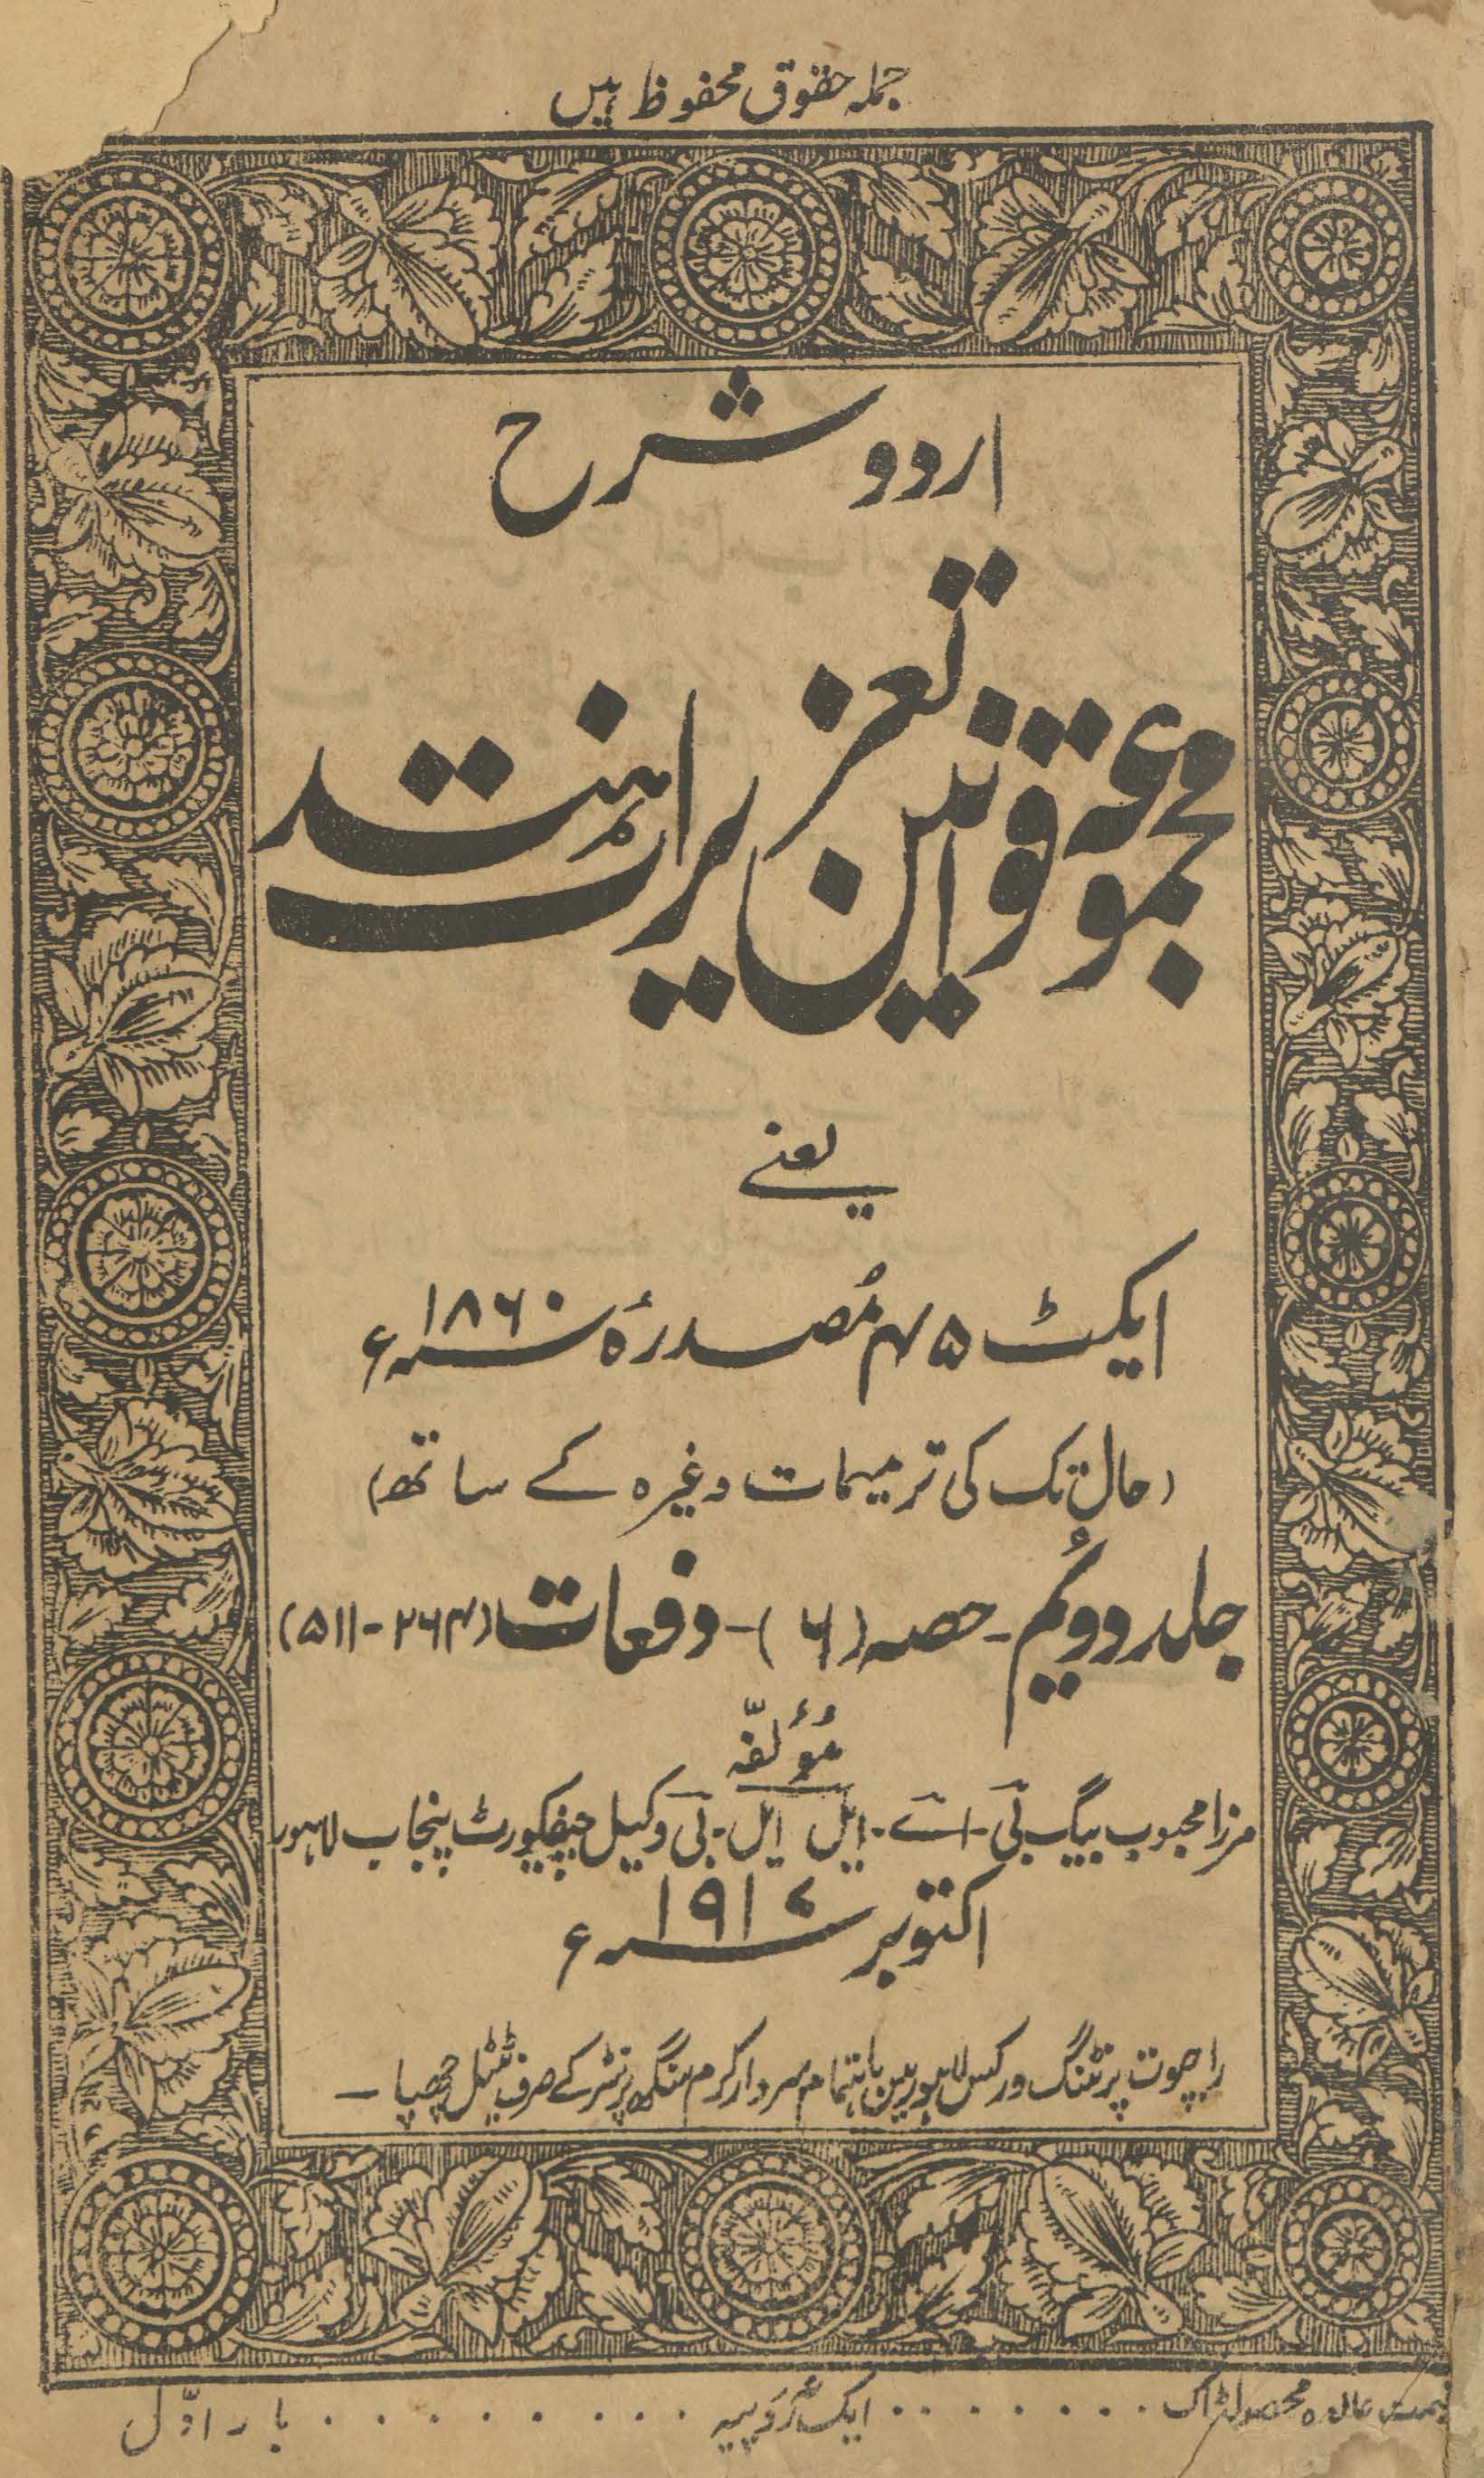 جملہ حقوق محفوظ ہیں
اردو شرح
مجموعہ قوانین تعزیرات ہند
یعنے
ایکٹ ۴۵ مُصدرۂ سنہ ۱۸۶۰ء
(حال تک کی ترمیمات وغیرہ کے ساتھ)
جلد دوئم - حصہ (۶) - دفعات (۲۶۴ - ۵۱۱)
مُؤلفّہ
مرزا محبوب بیگ بی - اے - ایل ایل - بی وکیل چیفکورٹ پنجاب لاہور
اکتوبر سنہ ۱۹۱۷ء
راجپوت پرنٹنگ ورکس لاہور مین باہتمام سردار کرم سنگھ پرنٹر کے صرف ٹیٹل چھپا -
قیمت علاوہ محصولڈاک . . . . . . . ایک روپیہ . . . . . . . . . بار اوّل